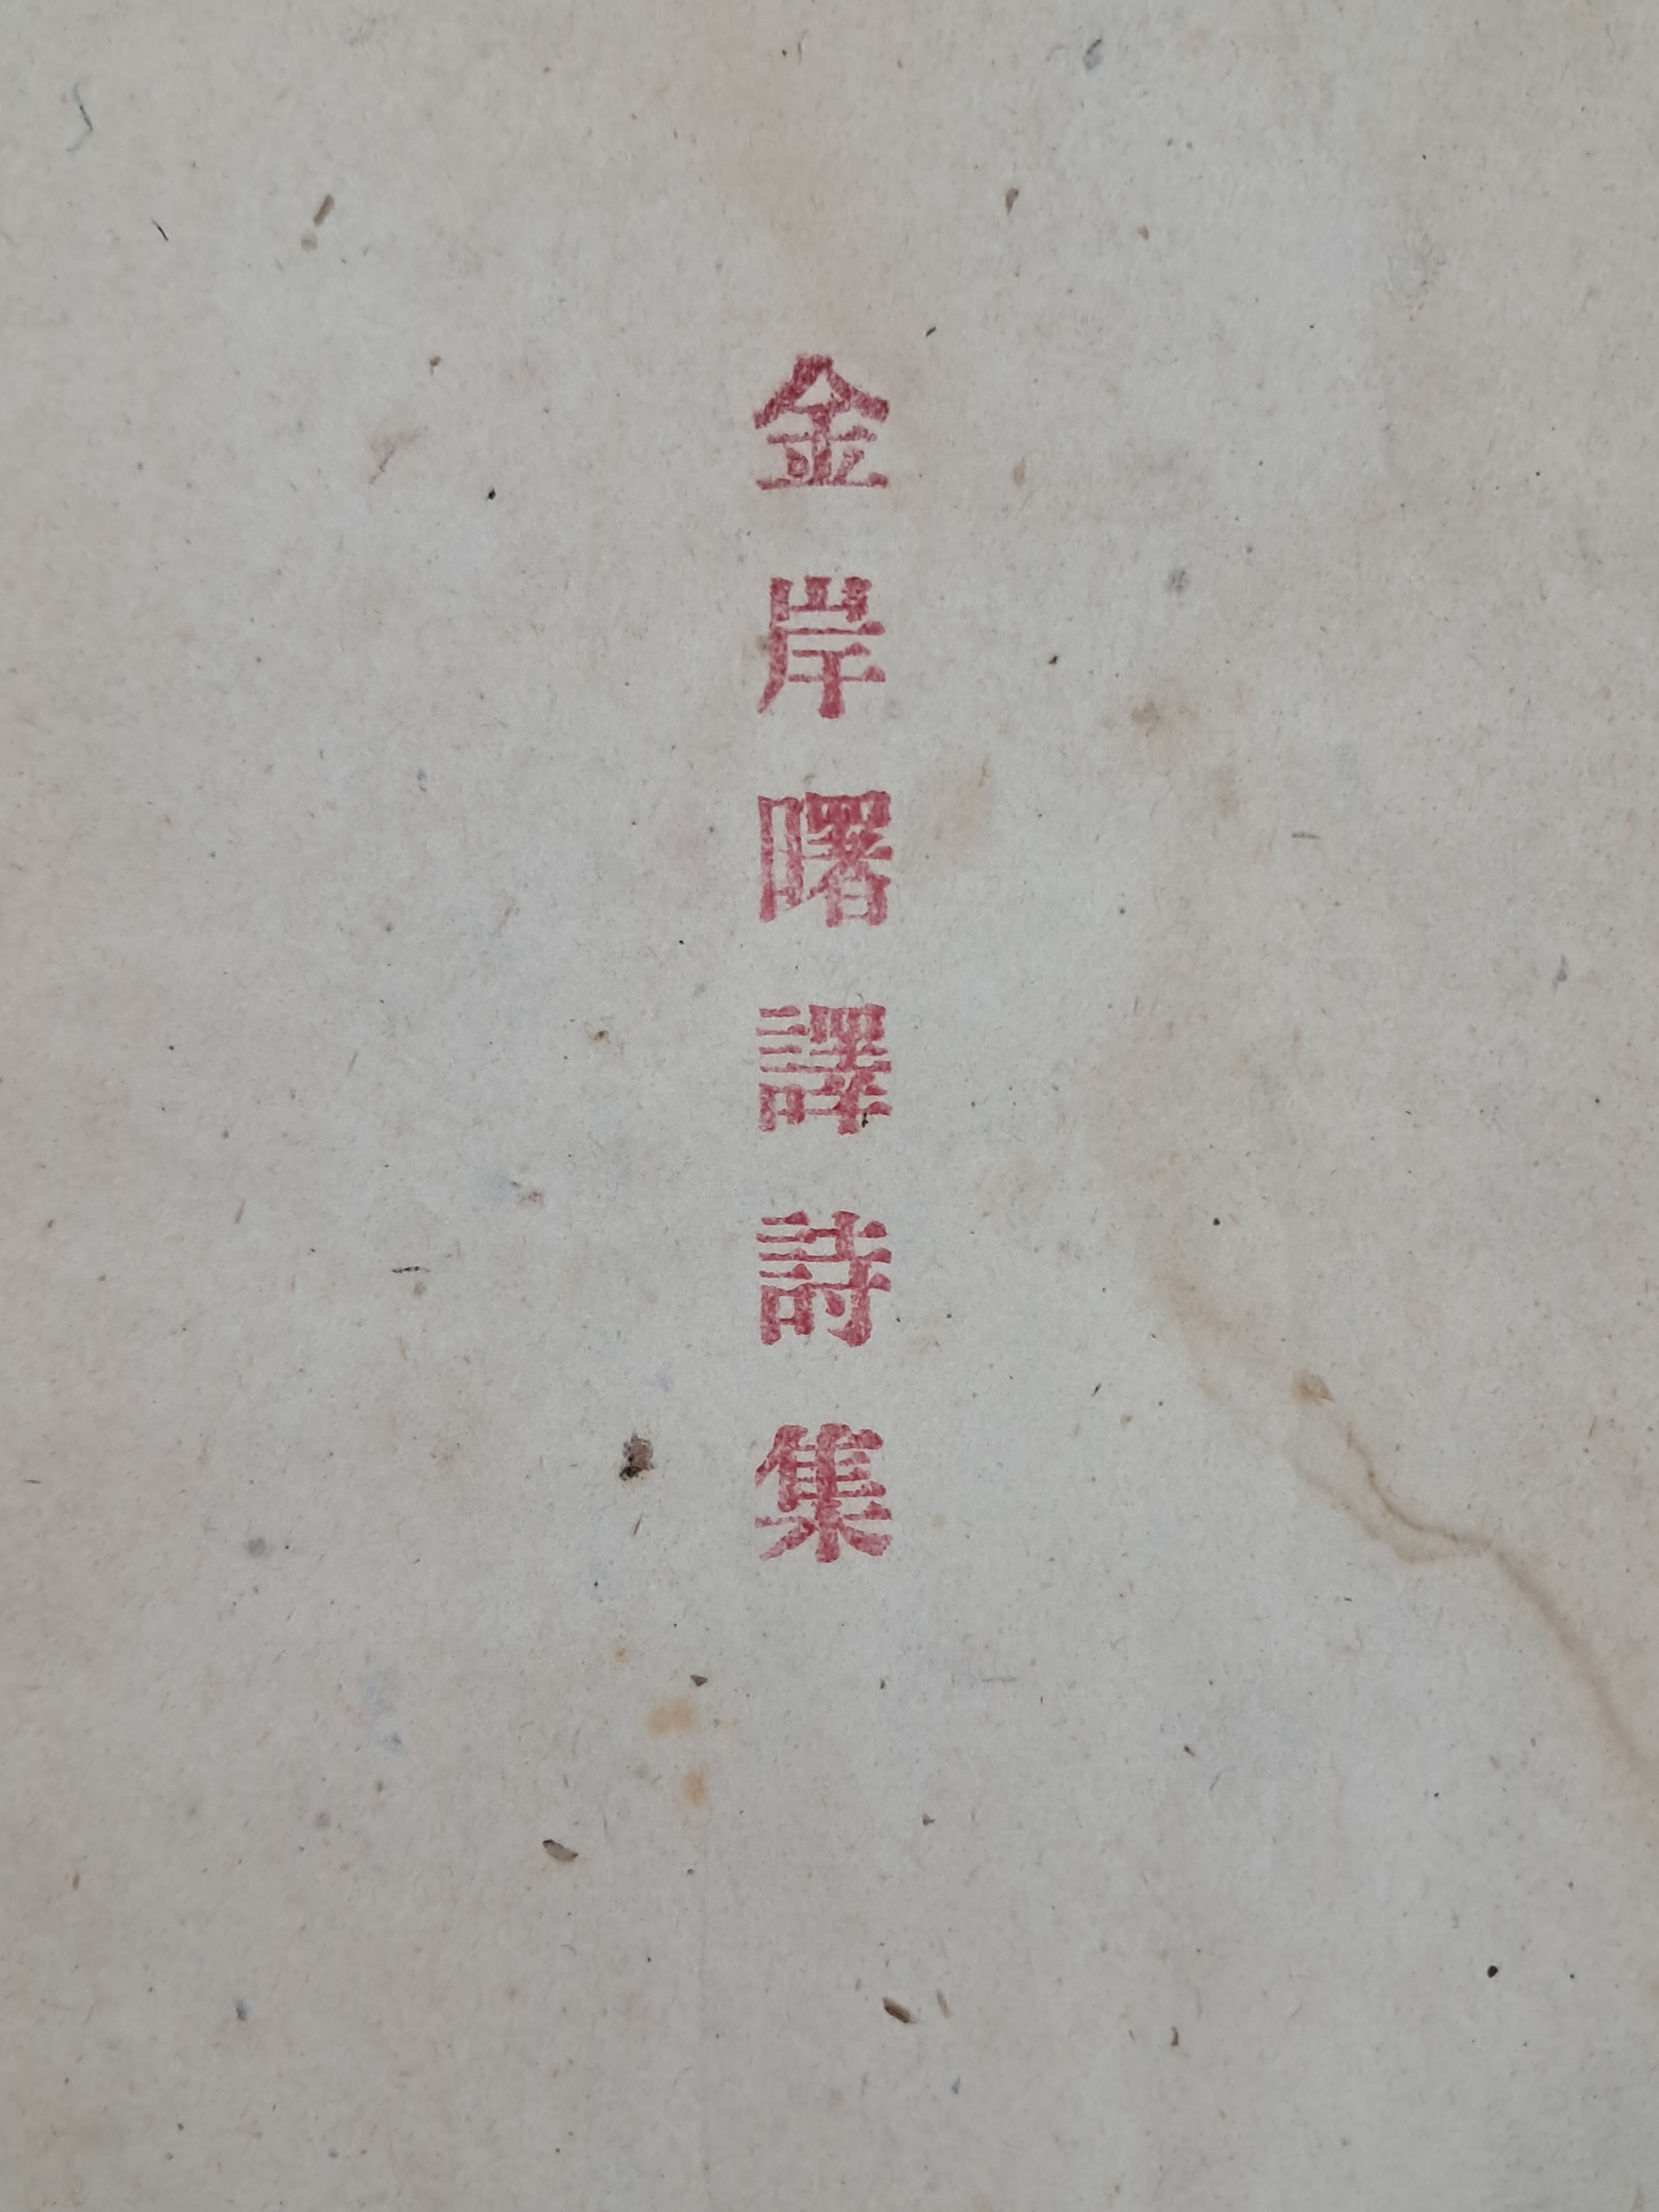 金岸曙譯詩集